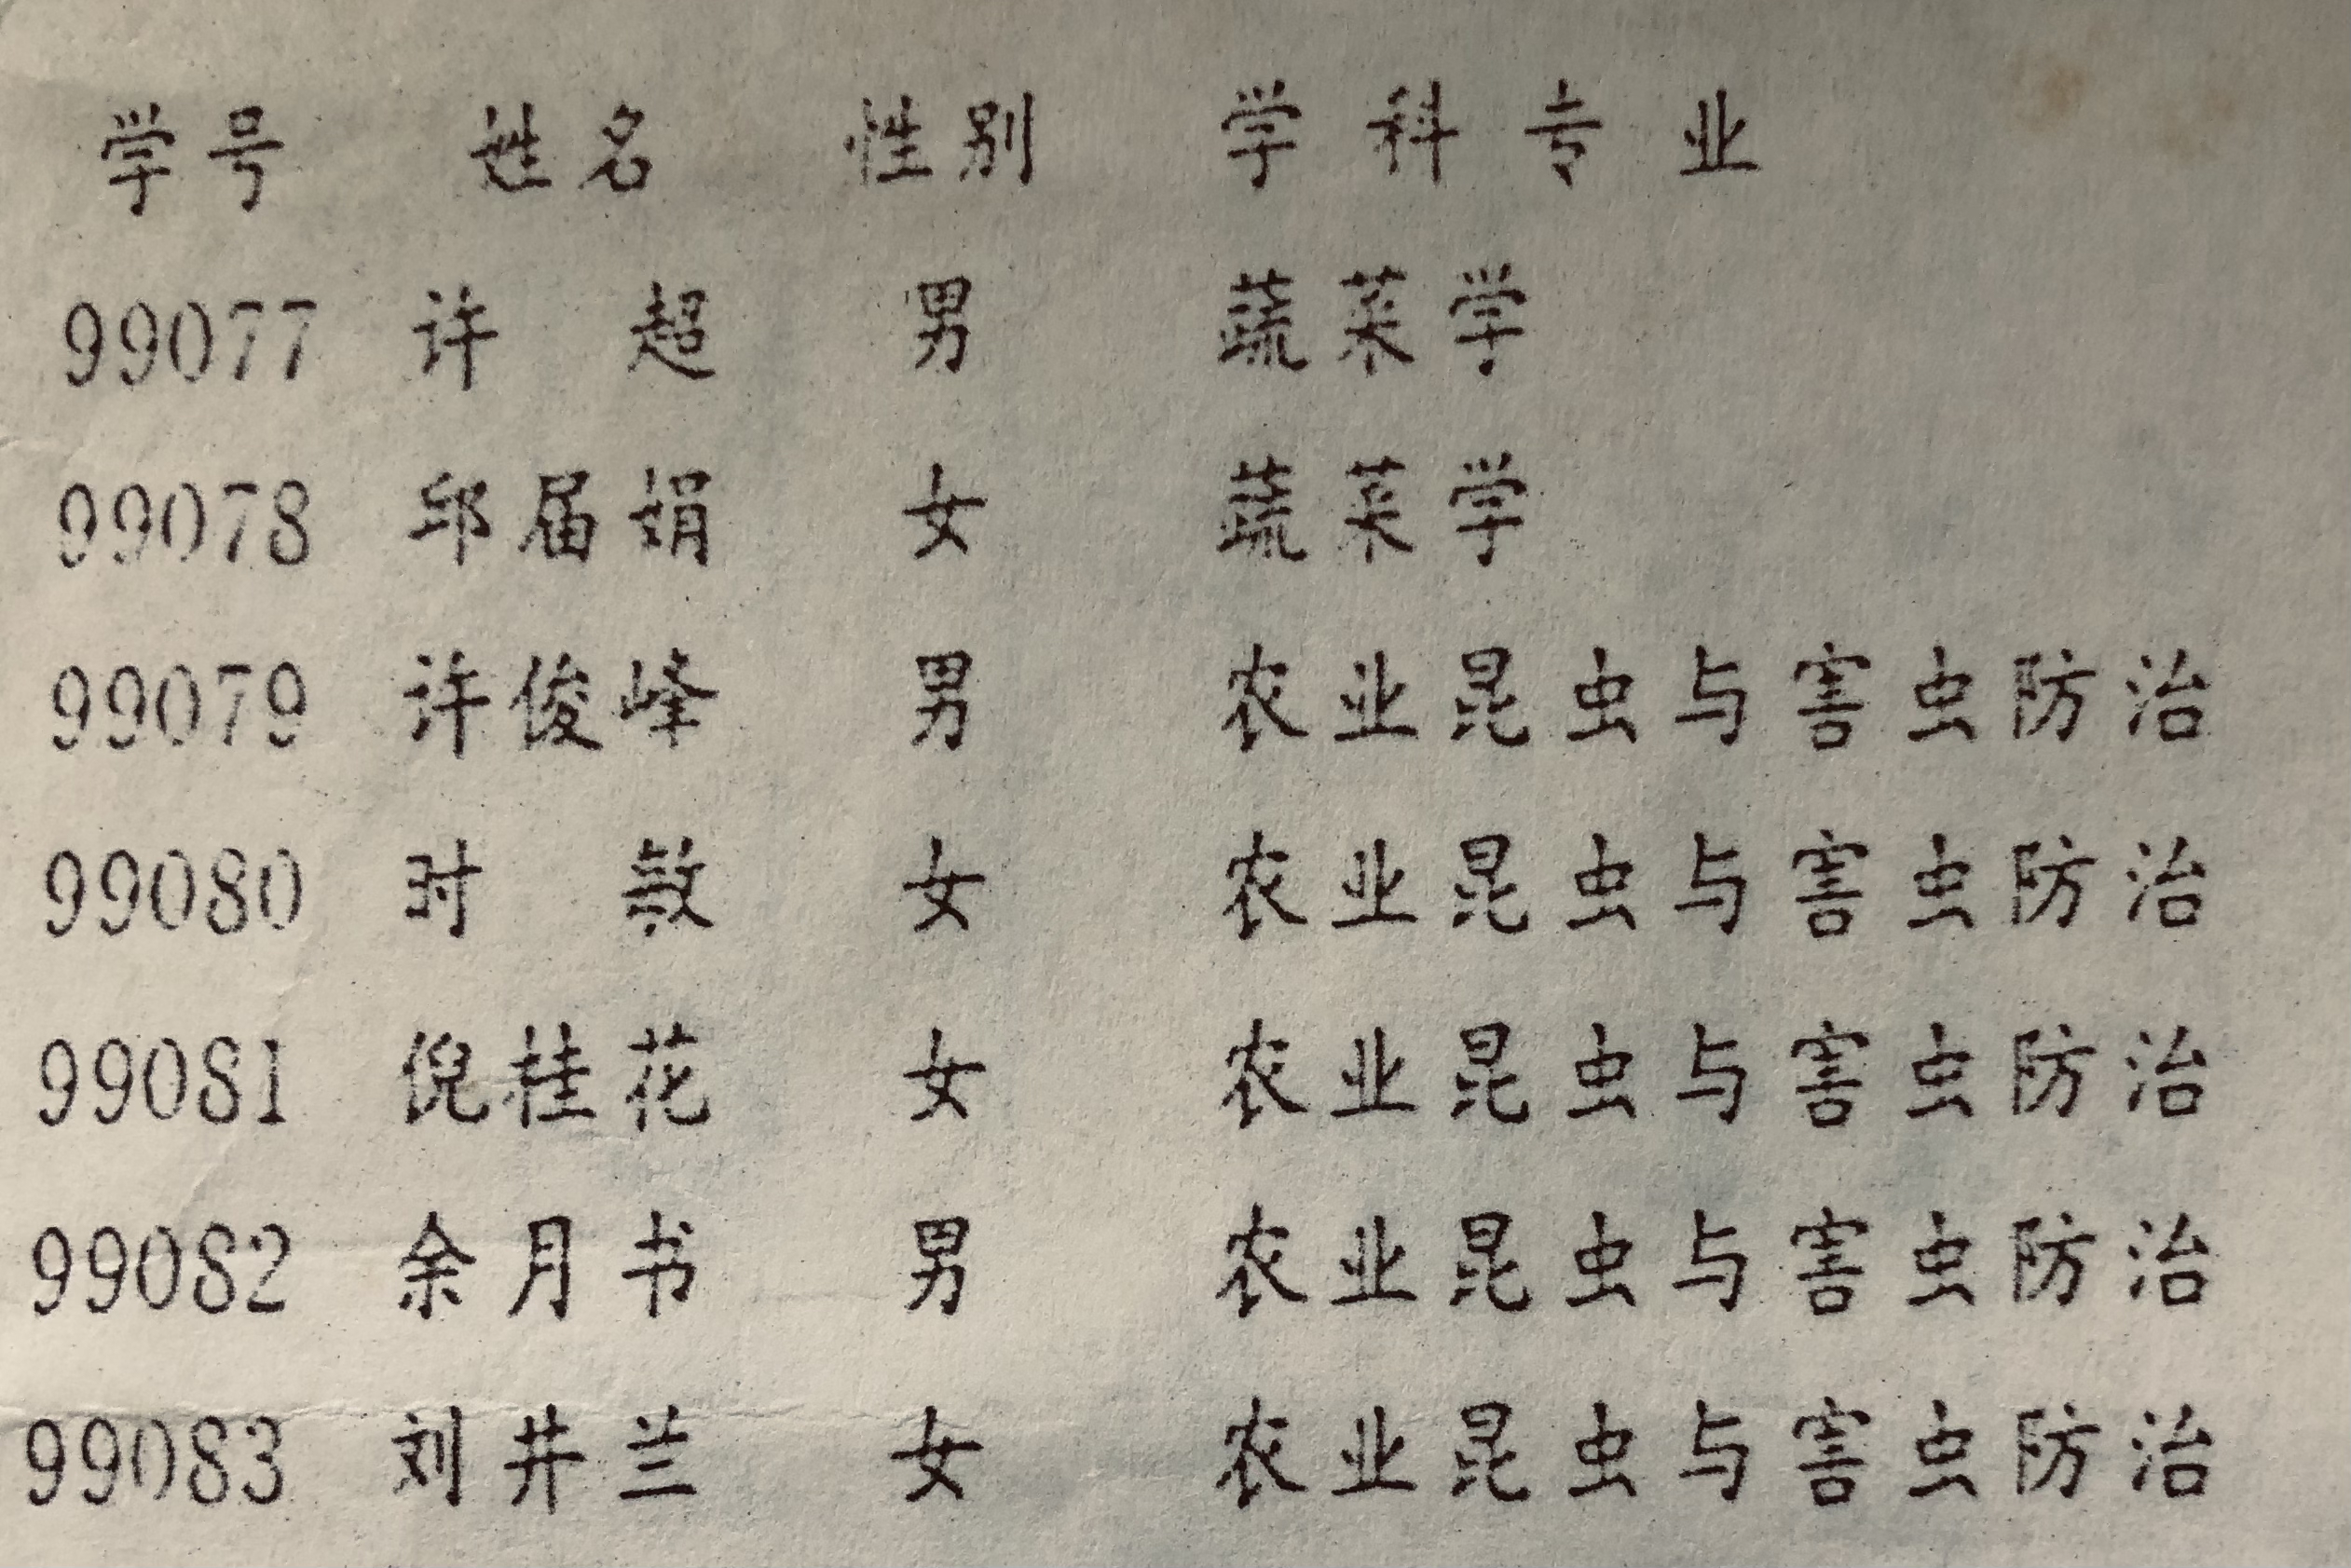 学号 姓名 性别 学科专业
99077 许 超 男 蔬菜学
99078 邱届娟 女 蔬菜学
99079 许俊峰 男 农业昆虫与害虫防治
99080 时 敏 女 农业昆虫与害虫防治
99081 倪桂花 女 农业昆虫与害虫防治
99082 余月书 男 农业昆虫与害虫防治
99083 刘井兰 女 农业昆虫与害虫防治